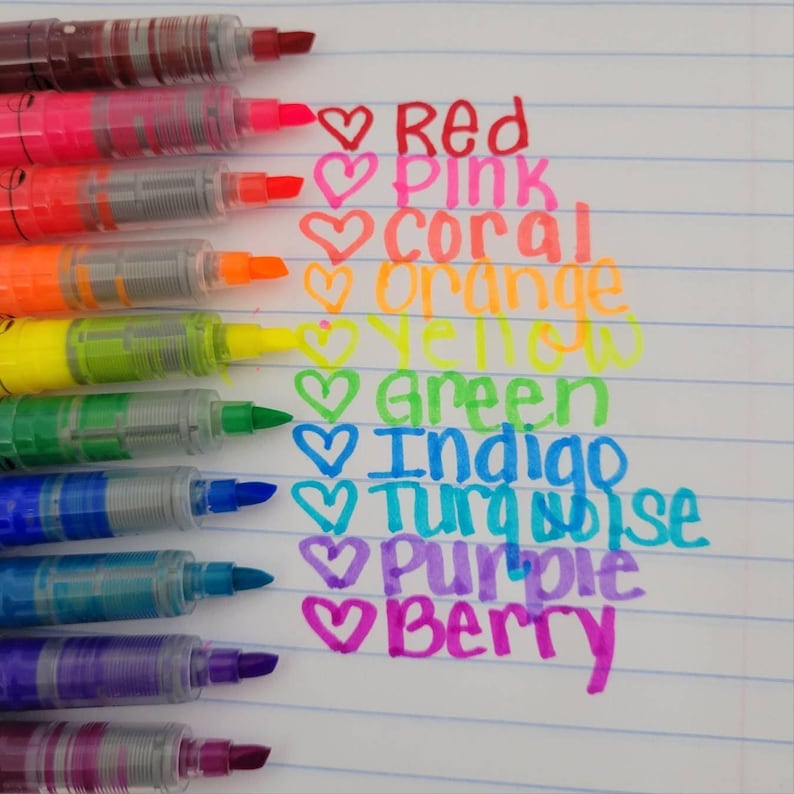 ♡ Red
♡ Pink
♡ Coral
♡ Orange
♡ Yellow
♡ Green
♡ Indigo
♡ Turquoise
♡ Purple
♡ Berry